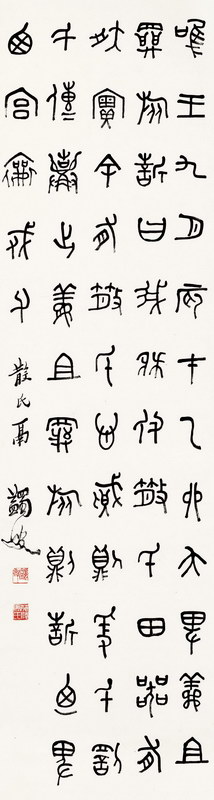 唯王九月辰才乙卯夨卑義且
旅誓曰我既付散氏田器有
爽實余有散氏心賊則爰千罰
千傳棄之義且旅則誓廼卑
西宮襄戎父
散氏鬲